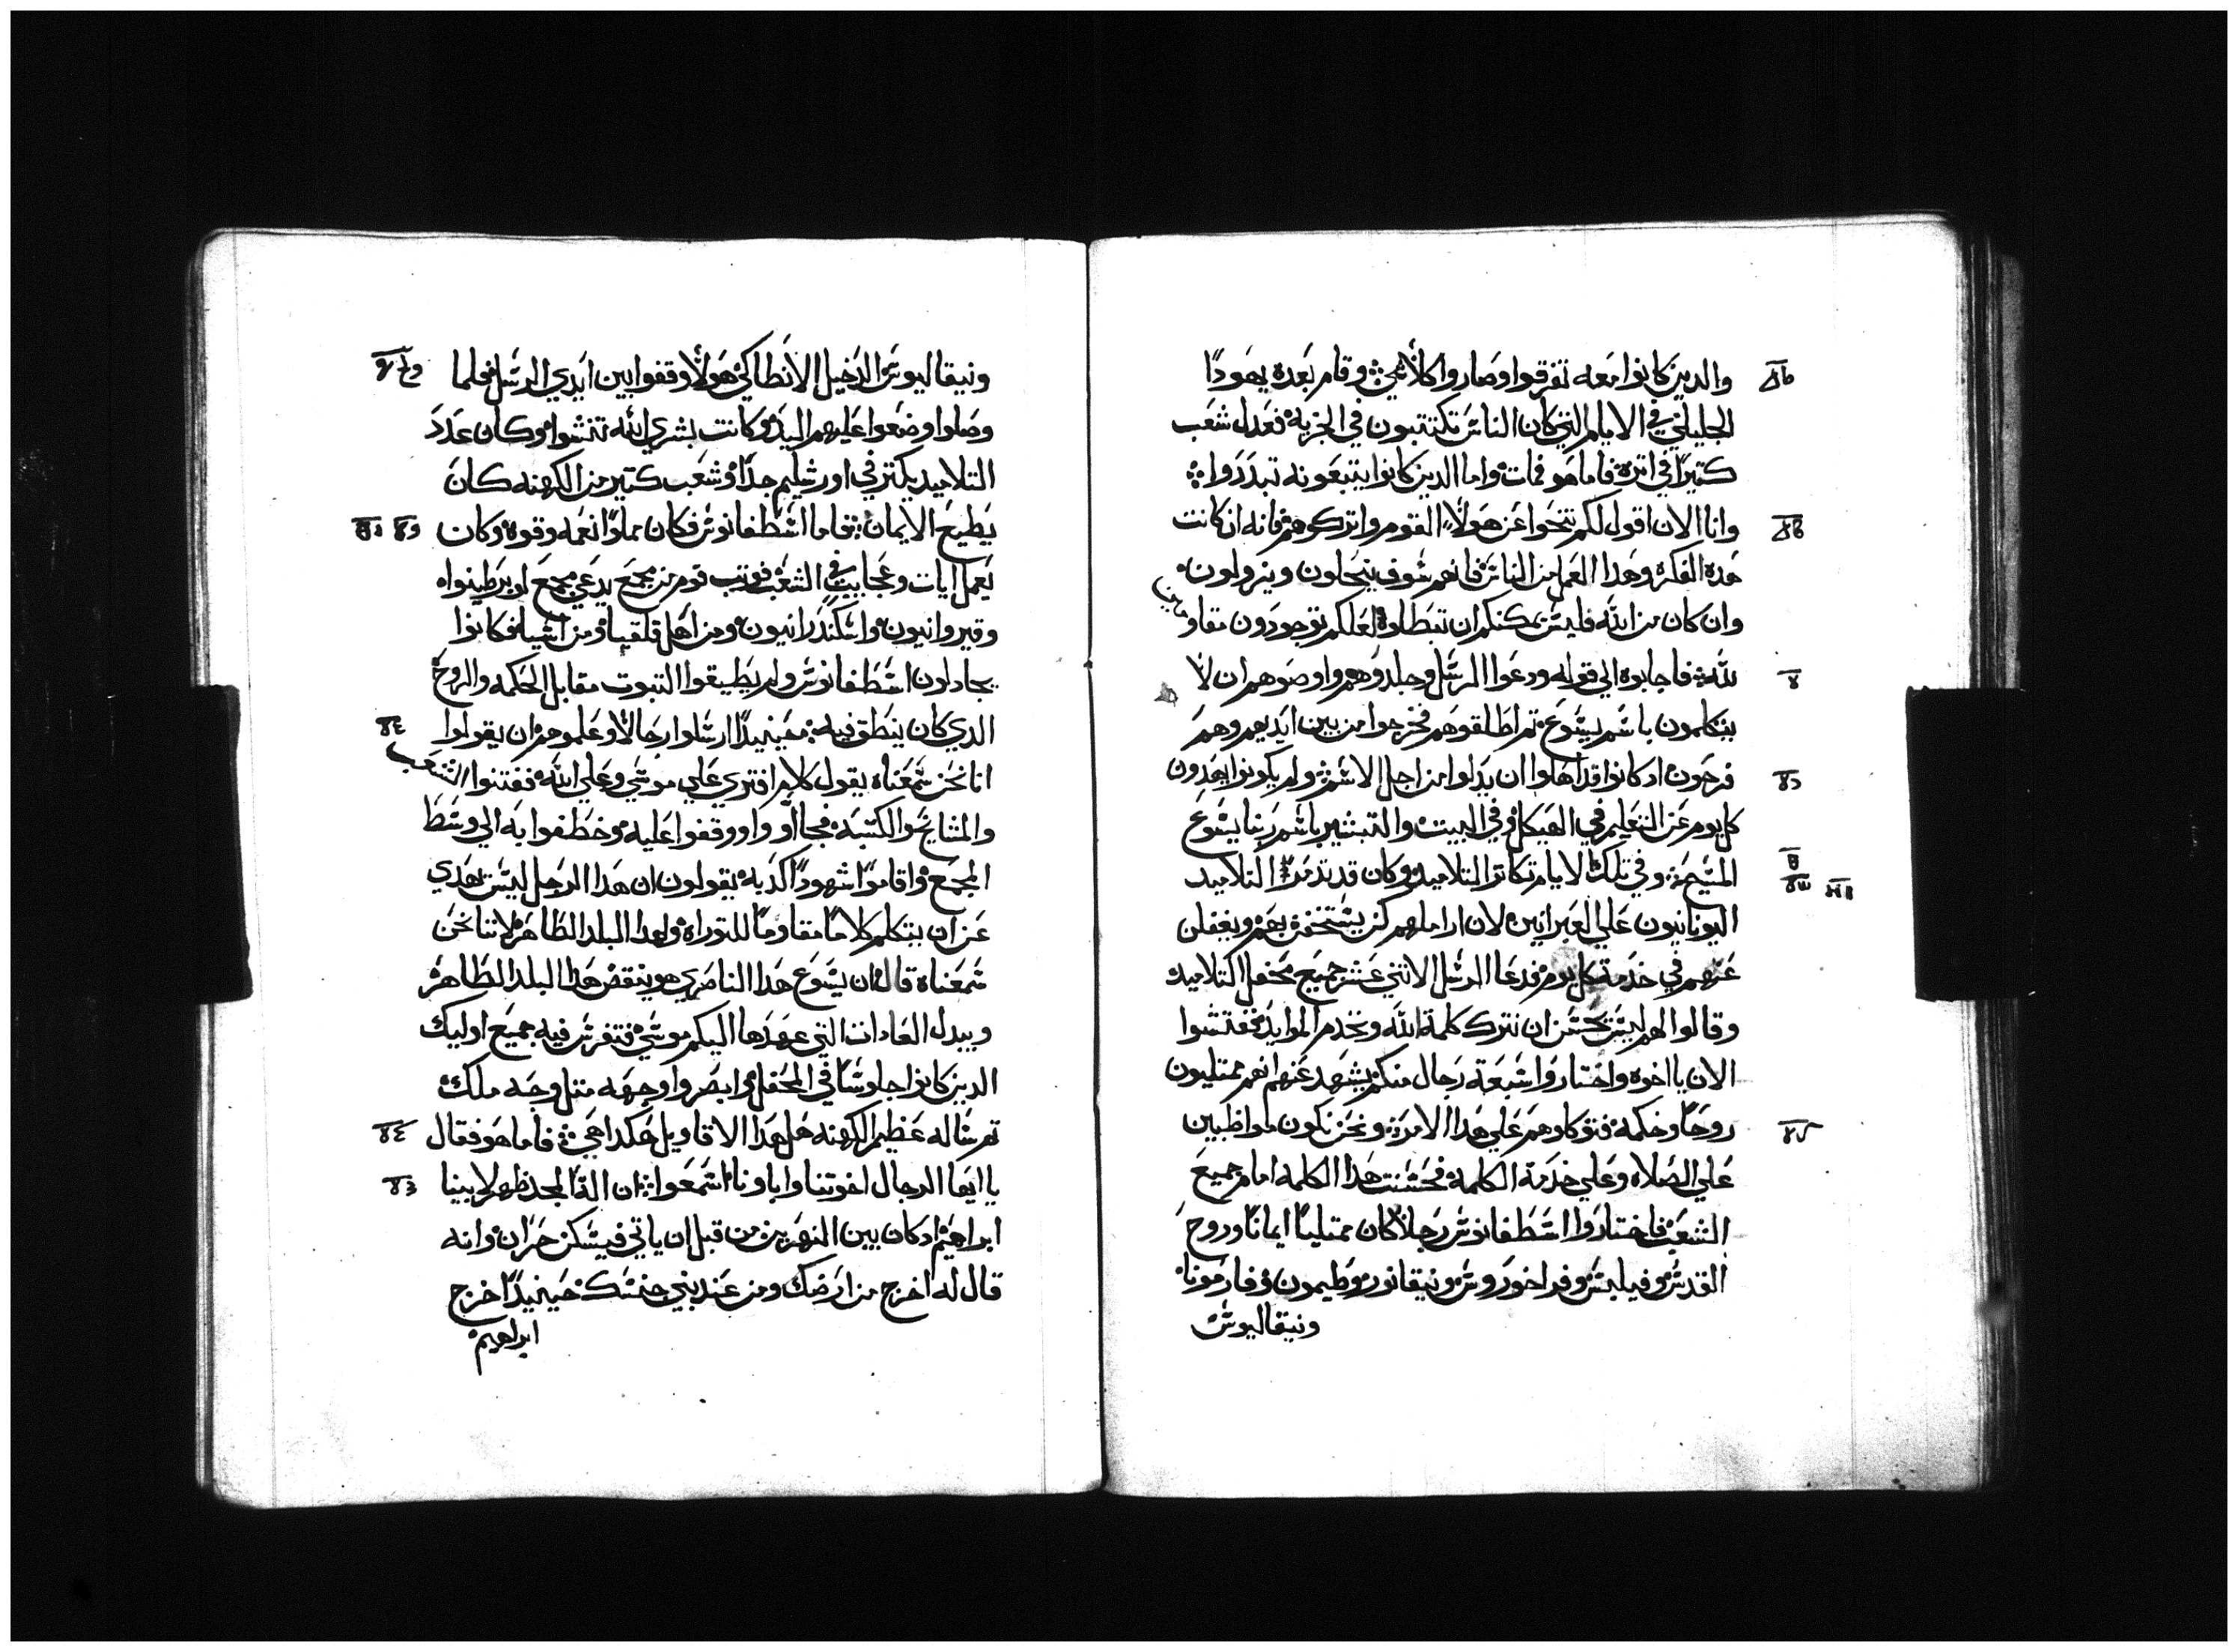 والدين كانوا معه تفرقوا وصاروا كلاشي وقام بعده يهودا
الجليلي في الايام التي كان الناس تكتتبون في الجزيه فعدل شعب
كتيرا في اتره فاما هو فمات واما الدين كانوا يتبعونه تبددوا
وانا الان اقول لكم تنحوا عن هولاء القوم واتركوهم فانه ان كانت
هده الفكره وهدا العمل من الناس فانهم سوف ينحلون ويزولون
وان كان من الله فليس يمكنكم ان تبطلوه لعلكم توجدون مقاومين
لله فاجابوه الي قوله ودعوا الرسل وجلدوهم واوصوهم ان لا
يتكلمون باسم يسوع تم اطلقوهم فخرجوا من بين ايديهم وهم
فرحون اد كانوا قد اهلوا ان يدلوا من اجل الاسم ولم يكونوا يهدون
كل يوم عن التعليم في الهيكل وفي البيت والتبشير باسم ربنا يسوع
المسيح وفي تلك الايام تكاتر التلاميد وكان قد تدمر التلاميد
اليونانيون علي العبرانيين لان اراملهم كن يستخف بهم ويغفلن
عنهم في خدمة كل يوم فدعا الرسل الاتني عشر جميع محفل التلاميد
وقالوا لهم ليس يحسن ان نترك كلمة الله ونخدم الموايد ففتشوا
الان يا اخوه واختاروا سبعة رجال منكم يشهد عنهم انهم ممتليون
روحا وحكمه فنوكلوهم علي هدا الامر ونحن نكون مواظبين
علي الصلاه وعلي خدمة الكلمه فحسنت هدا الكلمه امام جميع
الشعب فاختاروا اسطفانوس رجلا كان ممتليا ايمانا وروح
القدس وفيلبس وفراخوروس ونيقانور وطيمون وفارمونا
ونيقاليوس
ونيقاليوس الدخيل الانطاكي هولاء وقفوا بين ايدي الرسل فلما
وصلوا وضعوا عليهم اليد وكانت بشري الله تنشوا وكان عدد
التلاميد يكتر في اورشليم جدا وشعب كتير من الكهنه كان
يطيع الايمان فاما اسطفانوس فكان مملوا نعمه وقوه وكان
يعمل ايات وعجايب في الشعب فوتب قوم من مجمع يدعي مجمع لوبرطينوا
وقيروانيون واسكندرانيون ومن اهل قلقيا ومن اسيا فكانوا
يجادلون اسطفانوس ولم يطيقوا التبوت مقابل الحكمه والروح
الدي كان ينطق فيه حينيدا ارسلوا رجالا وعلموهم ان يقولوا
انا نحن سمعناه يقول كلام افتري علي موسي وعلي الله ففتنوا الشعب
والمشايخ والكتبه فجااوا ووقفوا عليه وخطفوا به الي وسط
المجمع واقاموا شهودا كدبه يقولون ان هدا الرجل ليس يهدي
عن ان يتكلم كلاما مقاوما للتوراه ولهدا البلد الطاهر لاننا نحن
سمعناه قال ان يسوع هدا الناصري هو ينقض هدا البلد الطاهر
ويبدل العادات التي عهدها اليكم موسي فتفرس فيه جميع اوليك
الدين كانوا جلوسا في المحفل وابصروا وجهه متل وجه ملك
تم ساله عظيم الكهنه هل هدا الاقاويل هكدا هي فاما هو فقال
يا ايها الرجال اخوتنا وابونا اسمعوا ان اله المجد ظهر لابينا
ابراهيم اد كان بين النهرين من قبل ان ياتي فيسكن حران وانه
قال له اخرج من ارضك ومن عند بني جنسك حينيدا خرج
ابراهيم